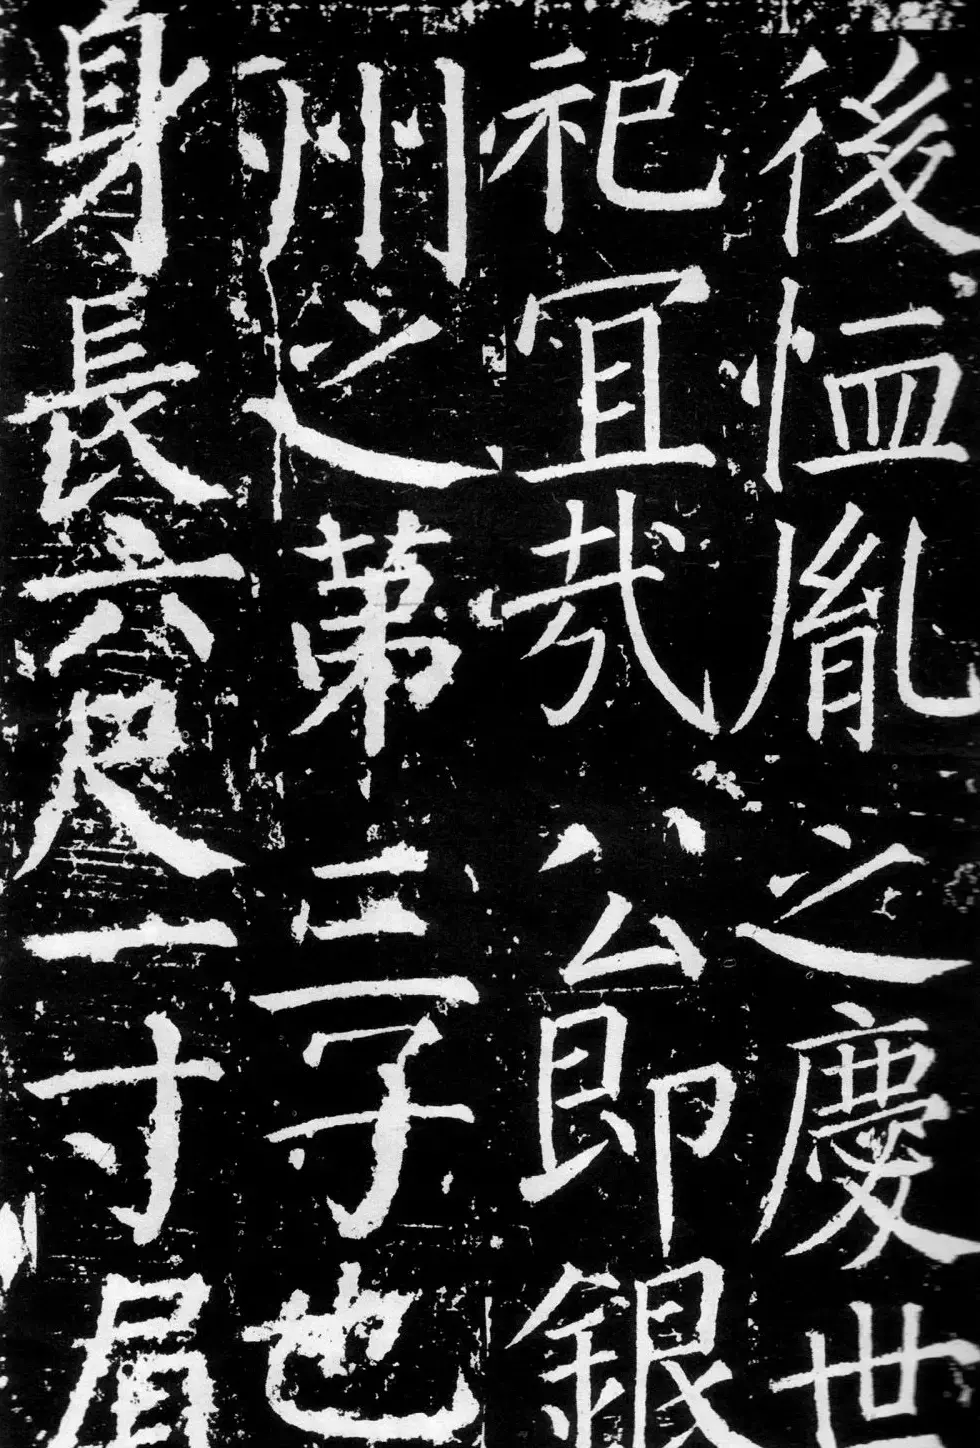 後恤胤之慶世
祀宜哉公即銀
州之第三子也
身長六尺一寸眉